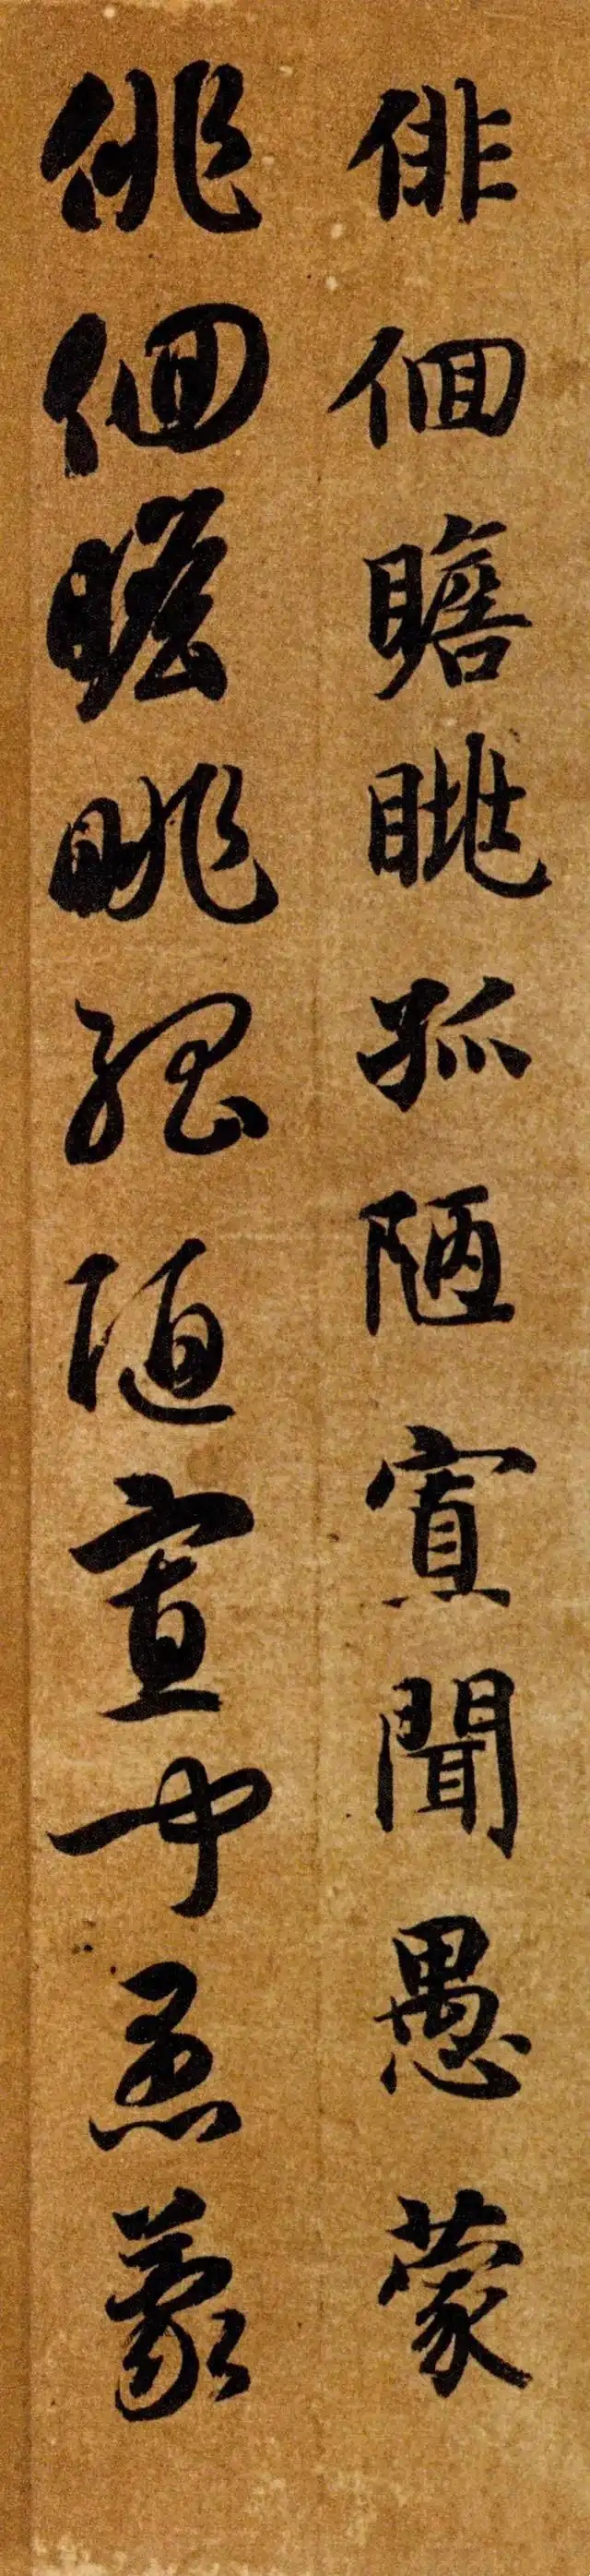 俳佪瞻眺孤陋寡聞愚蒙
俳佪瞻眺孤陋寡聞愚蒙